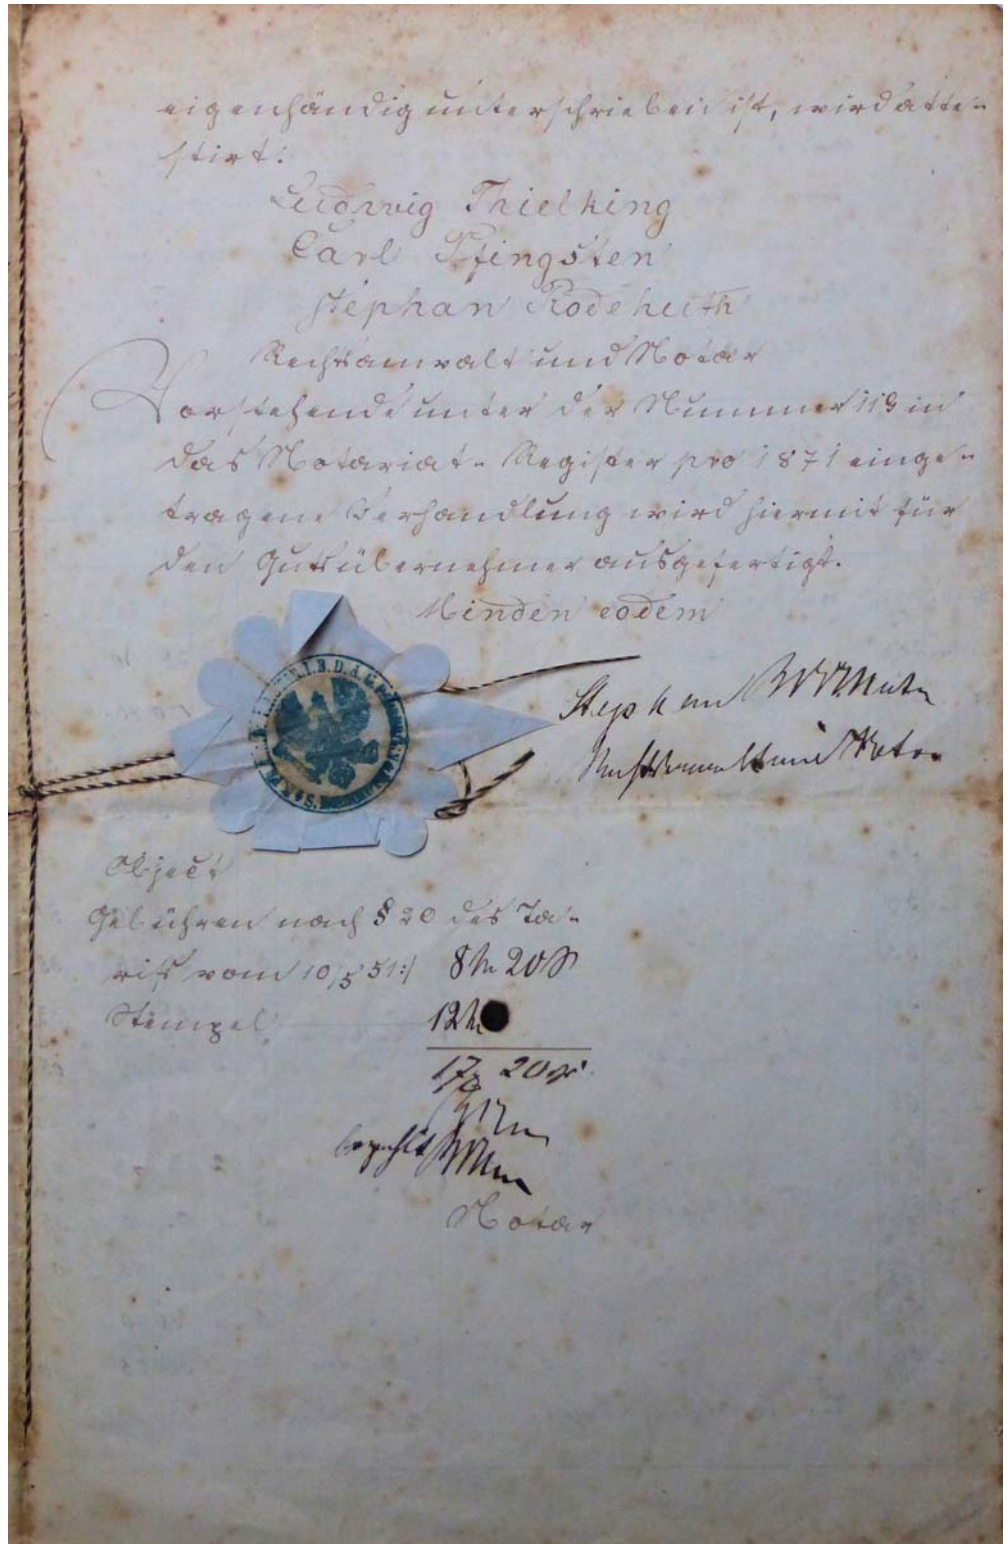 eigenhändig unterschrieben ist, wird atte-
stirt:
Ludwig Thielking
Carl Pfingsten
Stephan Rodehuth
Rechtsanwalt und Notar
Vorstehende unter der Nummer 119 in
das Notariat- Register pro 1871 einge-
tragene Verhandlung wird hiermit für
den Gutsübernehmer ausgefertigt.
Minden eodem
Stephan
Rechtsanwalt und Notar
Object
Gebühren nach § 20 des Ta-
rifs vom 10/5 51:/ 8 20
Stempel 12
20
bezahlt
Notar